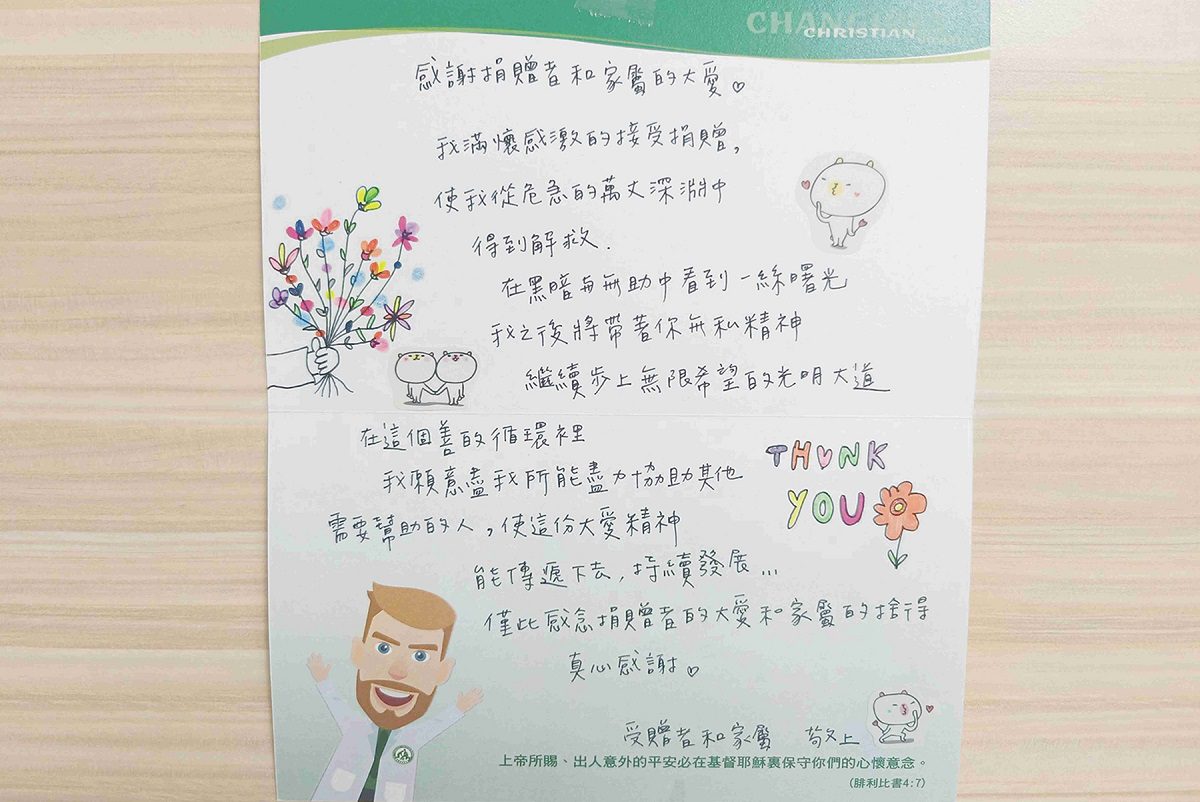 CHANG
CHRISTIAN
感謝捐贈者和家屬的大愛。
我滿懷感激的接受捐贈,
使我從危急的萬丈深淵中
得到解救.
在黑暗與無助中看到一絲曙光
我之後將帶著你無私精神
繼續步上無限希望的光明大道
在這個善的循環裡
我願意盡我所能盡力協助其他
需要幫助的人,使這份大愛精神
能傳遞下去,持續發展...
僅此感念捐贈者的大愛和家屬的捨得
真心感謝。
THANK
YOU
受贈者和家屬 敬上
上帝所賜、出人意外的平安必在基督耶穌裏保守你們的心懷意念。
(腓利比書4:7)